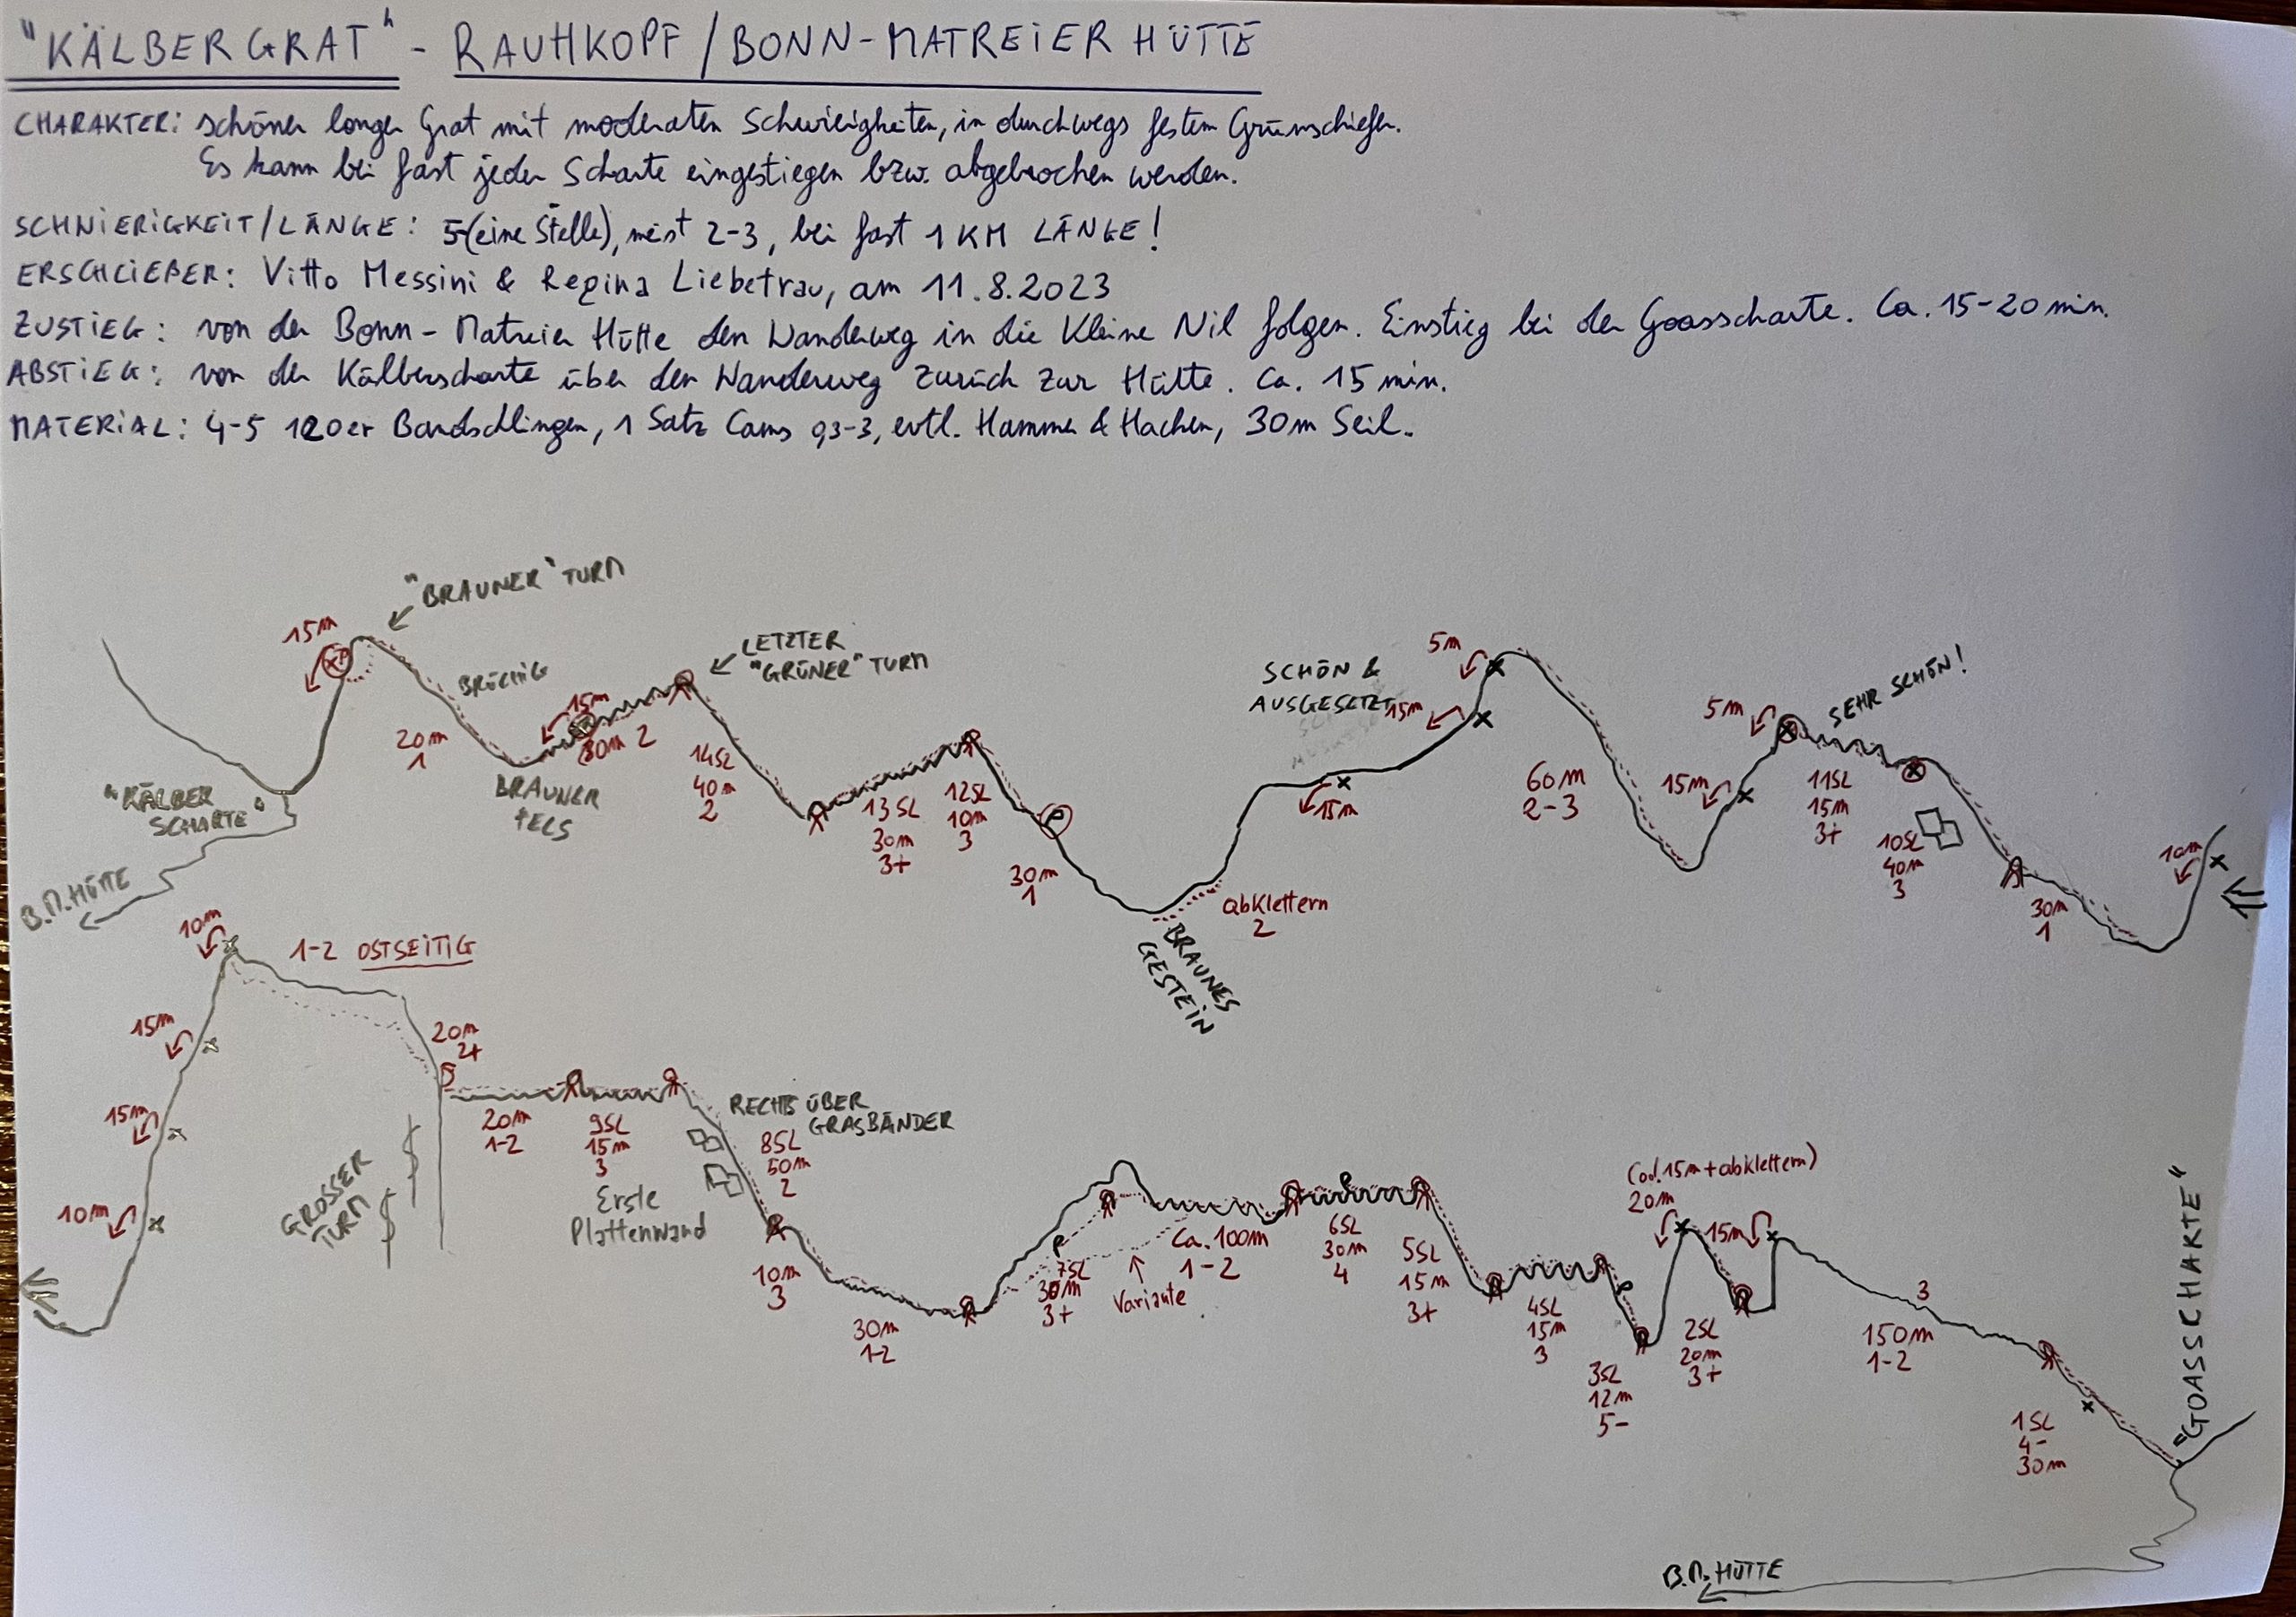 "KÄLBERGRAT" - RAUHKOPF/BONN-MATREIER HÜTTE
CHARAKTER: schöner langer Grat mit moderaten Schwierigkeiten, in durchwegs festem Grünschiefer.
Es kann bei fast jeder Scharte eingestiegen bzw. abgebrochen werden.
SCHWIERIGKEIT/LÄNGE: 5-(eine Stelle), meist 2-3, bei fast 1 KM LÄNGE!
ERSCHLIEßER: Vitto Messini & Regina Liebetrau, am 11.8.2023
ZUSTIEG: von der Bonn-Matreier Hütte den Wanderweg in die Kleine Nil folgen. Einstieg bei der Goasscharte. Ca. 15-20 min.
ABSTIEG: von der Kälberscharte über den Wanderweg zurück zur Hütte. Ca. 15 min.
MATERIAL: 4-5 120er Bandschlingen, 1 Satz Cams 0,3-3, evtl. Hammer & Hacken, 30m Seil.
"BRAUNER" TURM
15m
BRÜCHIG
20m
1
"KÄLBER
SCHARTE"
B.M. HÜTTE
15m
30m 2
BRAUNER
FELS
LETZTER
"GRÜNER" TURM
14SL
40m
2
13SL
30m
3+
12SL
10m
3
30m
1
BRAUNES
GESTEIN
abklettern
2
SCHÖN &
AUSGESETZT
15m
15m
5m
60m
2-3
15m
5m
SEHR SCHÖN!
11SL
15m
3+
10SL
40m
3
30m
1
10m
10m
1-2 OSTSEITIG
15m
15m
10m
20m
2+
GROSSER
TURM
20m
1-2
9SL
15m
3
Erste
Plattenwand
RECHTS ÜBER
GRASBÄNDER
8SL
50m
2
10m
3
30m
1-2
7SL
30m
3+
Variante
Ca. 100m
1-2
6SL
30m
4
5SL
15m
3+
4SL
15m
3
3SL
12m
5-
(od. 15m + abklettern)
20m
15m
2SL
20m
3+
3
150m
1-2
1SL
4-
30m
"GOASSCHARTE"
B.M. HÜTTE